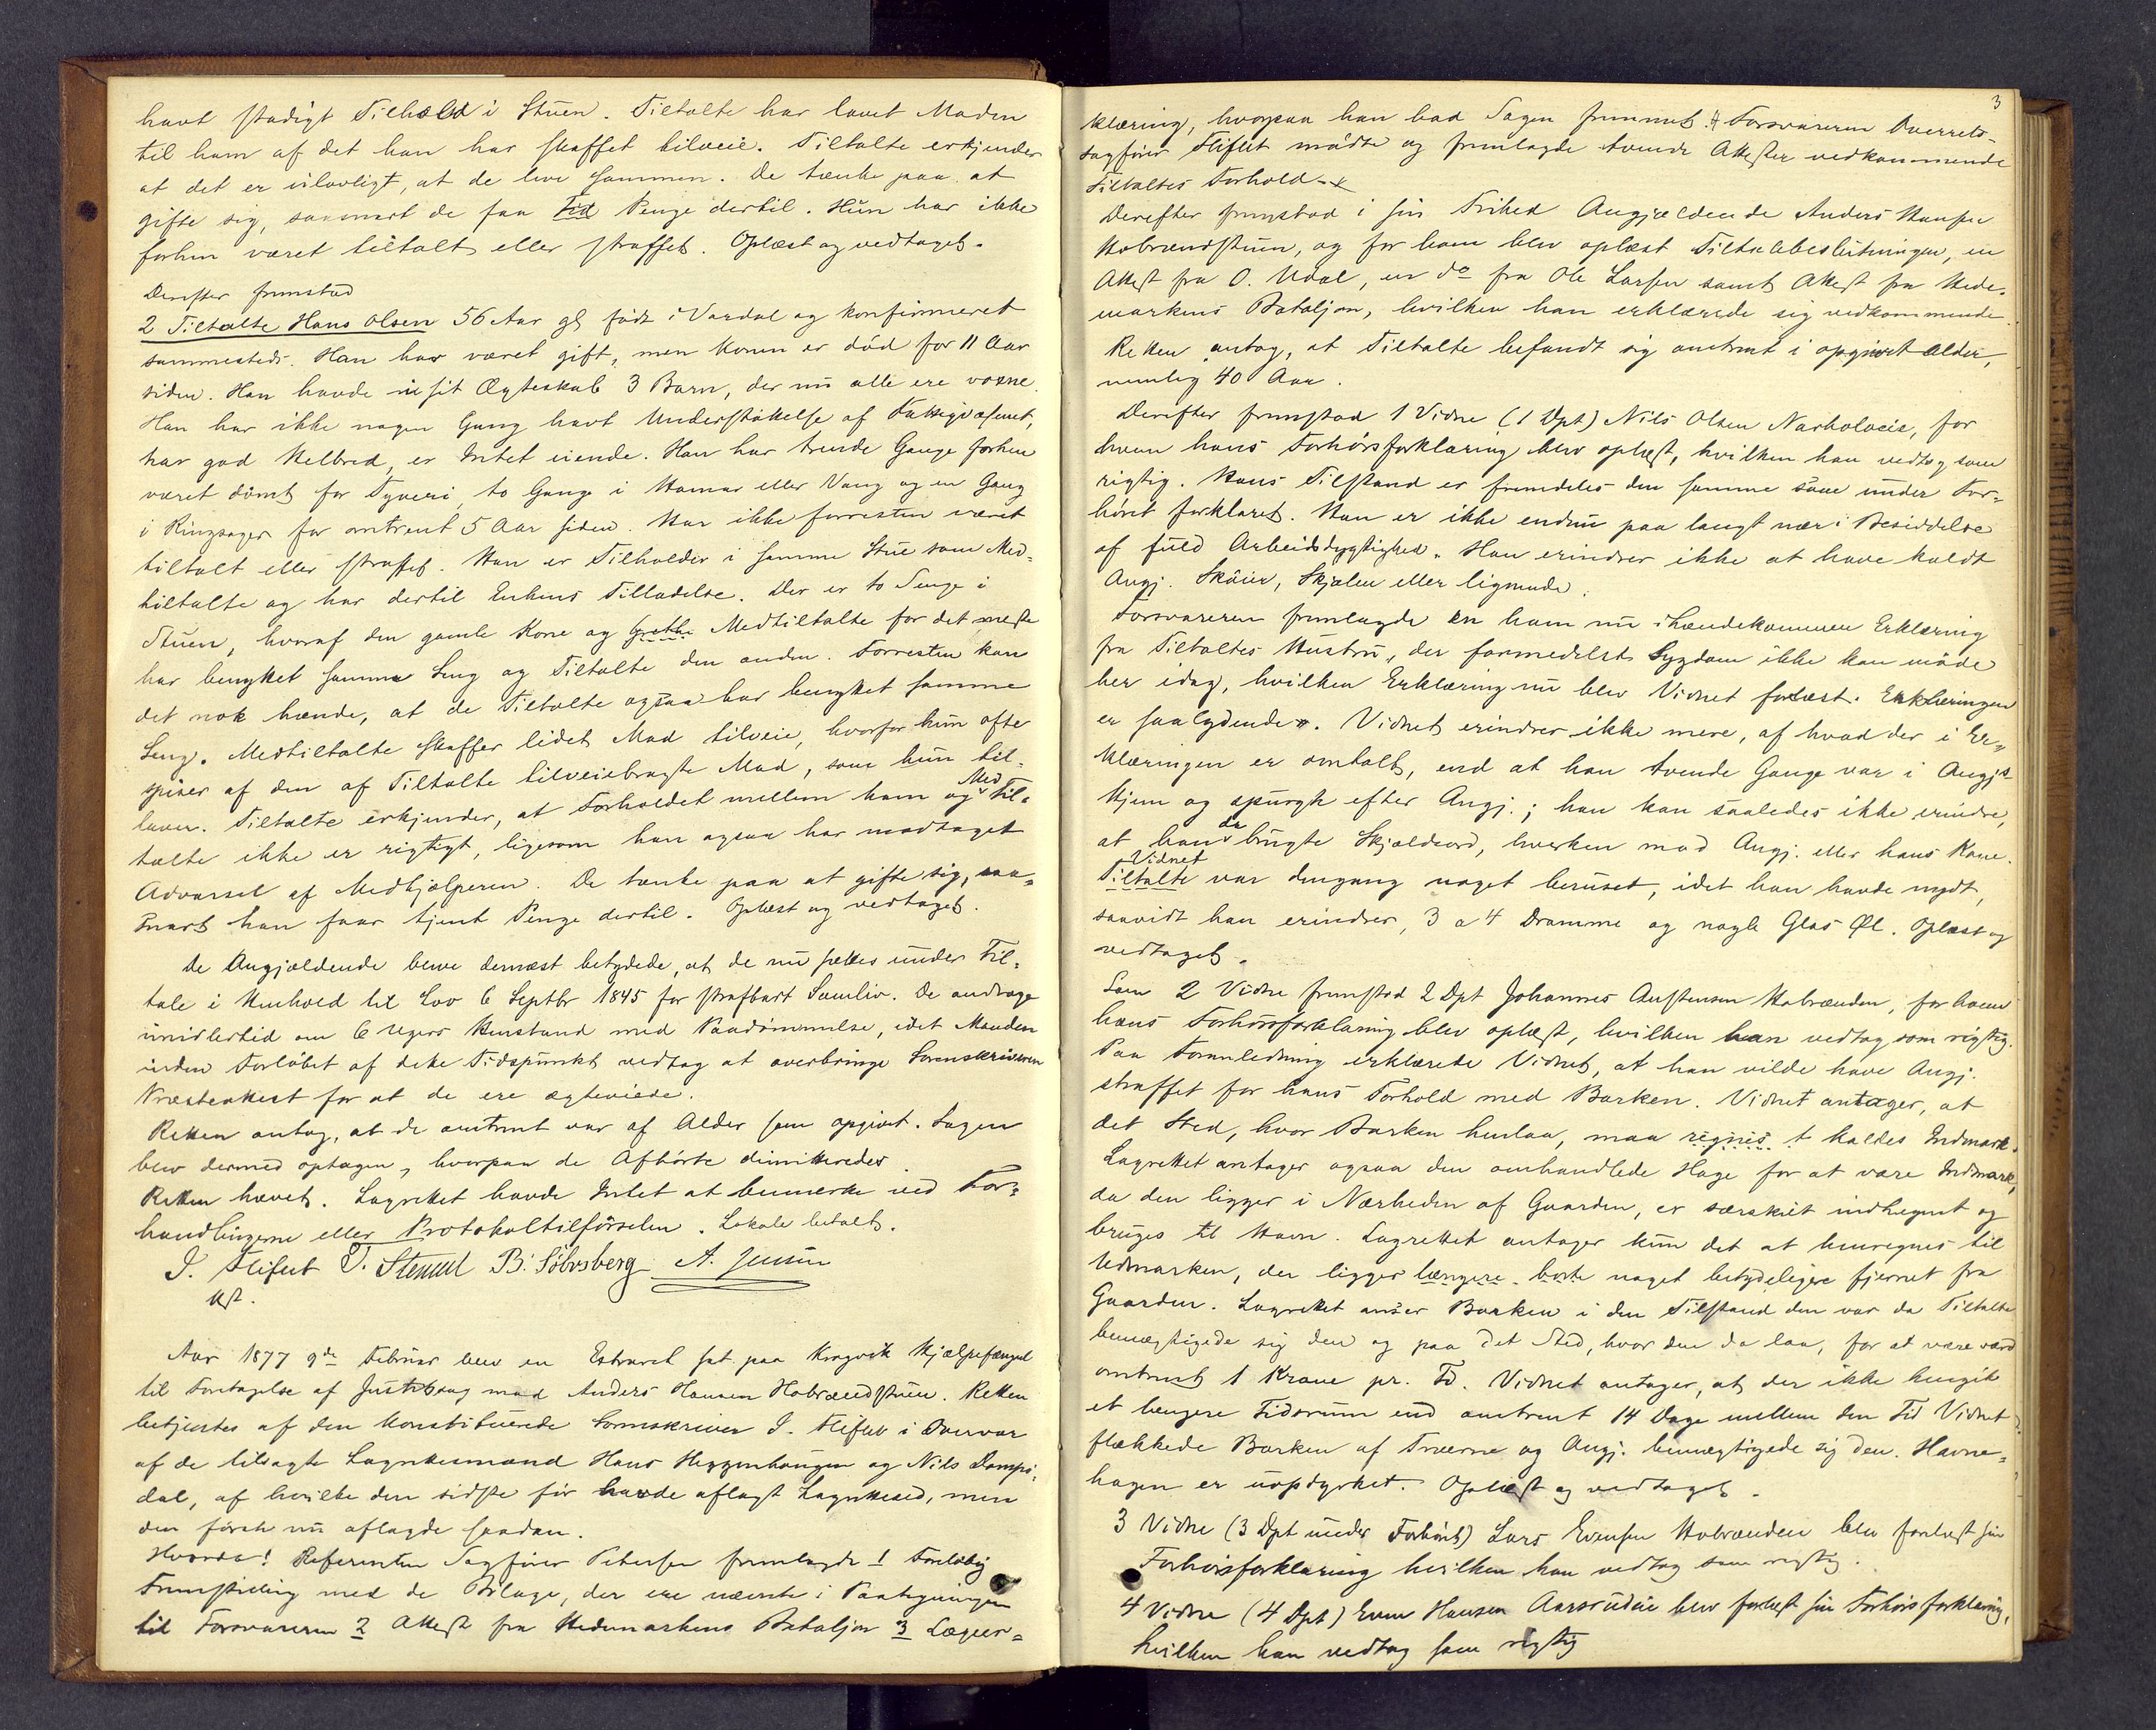 havt stadigt Tilhold i Stuen. Tiltalte har lavet Maden
til ham af det han har skaffet tilveie. Tiltalte erkjender
at det er ulovligt, at de leve sammen. De tænke paa at
gifte sig, saasnart de faa Tid Penge dertil. Hun har ikke
forhen været tiltalt eller straffet. Oplæst og vedtaget.
Derefter fremstod
2 Tiltalte Hans Olsen 56 Aar gl født i Vardal og konfirmeret
sammesteds. Han har været gift, men Konen er død for 11 Aar
siden. Han havde i sit Ægteskab 3 Børn, der nu alle ere voxne.
Han har ikke nogen Gang havt Understøttelse af Fattigvæsenet,
har god Helbred, er Intet eiende. Han har trende Gange forhen
været dømt for Tyveri, to Gange i Hamar eller Vang og en Gang
i Ringsager for omtrent 5 Aar siden. Har ikke forresten været
tiltalt eller straffet. Han er Tilholder i samme Stue som Med-
tiltalte og har dertil Enkens Tilladelse. Der er to Senge i
Stuen, hvoraf den gamle Kone og Grethe Medtiltalte for det meste
har benyttet samme Seng og Tiltalte den anden. Forresten kan
det nok hænde, at de Tiltalte ogsaa har benyttet samme
Seng. Medtiltalte skaffer lidet Mad tilveie, hvorfor hun ofte
spiser af den af Tiltalte tilveiebragte Mad, som hun til-
laver. Tiltalte erkjender, at Forholdet mellem ham og Med Til-
talte ikke er rigtigt, ligesom han ogsaa har modtaget
Advarsel af Medhjælperen. De tænke paa at gifte sig, saa-
snart han faar tjent Penge dertil. Oplæst og vedtaget.
De Angjældende bleve dernæst betydede, at de nu sættes under Til-
tale i Henhold til Lov 6 Septbr 1845 for strafbart Samliv. De androge
imidlertid om 6 Ugers Henstand med Paadømmelse, idet Manden
inden Forløbet af dette Tidspunkt vedtog at overbringe Sorenskriveren
Præsteattest for at de ere ægteviede.
Retten antog, at de omtrent var af Alder som opgivet. Sagen
blev dermed optagen, hvorpaa de Afhørte dimitteredes.
Retten hævet. Lagrettet havde Intet at bemærke ved For-
handlingerne eller Protokoltilførselen. Lokale betalt.
J. Fliflet P. Stensul B. Sølvsberg A. Jensen
kst.
Aar 1877 9de Februar blev en Extraret sat paa Kragvik Hjælpefængsel
til Foretagelse af Justitssag mod Anders Hansen Hobrændstuen. Retten
betjentes af den konstituerede Sorenskriver J. Fliflet i Overvær
af de tilsagte Lagrettesmænd Hans Heggenhaugen og Nils Dompi-
dal, af hvilke den sidste før havde aflagt Lagrettesed, men
den første nu aflagde saadan.
Hvorda! Referenten Sagfører Petersen fremlagde 1 Foreløbig
Fremstilling med de Bilage, der ere nævnte i Paategningen
til Forsvareren 2 Attest fra Hedemarkens Bataljon 3 Lægeer-
3
klæring, hvorpaa han bad Sagen fremmet. # Forsvareren Overrets-
sagfører Fliflet mødte og fremlagde tvende Attester vedkommende
Tiltaltes Forhold.
Derefter fremstod i sin Frihed Angjældende Anders Hansen
Hobrændstuen, og for ham blev oplæst Tiltalebeslutningen, en
Attest fra O. Udal, en do fra Ole Larsen samt Attest fra Hede-
markens Bataljon, hvilken han erklærede sig vedkommende.
Retten antog, at Tiltalte befandt sig omtrent i opgivet Alder,
nemlig 40 Aar.
Derefter fremstod 1 Vidne (1 Dpt) Nils Olsen Narholoeie, for
hvem hans Forhørsforklaring blev oplæst, hvilken han vedtog som
rigtig. Hans Tilstand er fremdeles den samme som under For-
høret forklaret. Han er ikke endnu paa langt nær i Besiddelse
af fuld Arbeidsdygtighed. Han erindrer ikke at have kaldt
Angj. Skøier, Skjælm eller lignende.
Forsvareren fremlagde en ham nu ihændekommen Erklæring
fra Tiltaltes Hustru, der formedelst Sygdom ikke kan møde
her idag, hvilken Erklæring nu blev Vidnet forelæst. Erklæringen
er saalydende. Vidnet erindrer ikke mere, af hvad der i Er-
klæringen er omtalt, end at han tvende Gange var i Angjs
Hjem og spurgte efter Angj.; han kan saaledes ikke erindre,
at han da brugte Skjældsord, hverken mod Angj. eller hans Kone.
Vidnet
Tiltalte var dengang noget beruset, idet han havde nydt,
saavidt han erindrer, 3 a 4 Dramme og nogle Glas Øl. Oplæst og
vedtaget.
Som 2 Vidne fremstod 2 Dpt Johannes Austensen Hobrænden, for hvem
hans Forhørsforklaring blev oplæst, hvilken han vedtog som rigtig.
Paa Foranledning erklærede Vidnet, at han vilde have Angj.
straffet for hans Forhold med Barken. Vidnet antager, at
det Sted, hvor Barken henlaa, maa regnes t kaldes Indmark.
Lagrettet antager ogsaa den omhandlede Hage for at være Indmark,
da den ligger i Nærheden af Gaarden, er særskilt indhegnet og
bruges til Havn. Lagrettet antager kun det at henregnes til
Udmarken, der ligger længere borte noget betydeligere fjernet fra
Gaarden. Lagrettet anser Barken i den Tilstand den var da Tiltalte
bemægtigede sig den og paa det Sted, hvor den da laa, for at være værd
omtrent 1 Krone pr. Td. Vidnet antager, at der ikke hengik
et længere Tidsrum end omtrent 14 Dage mellem den Tid Vidnet
flækkede Barken af Træerne og Angj. bemægtigede sig den. Havne-
hagen er uopdyrket. Oplæst og vedtaget.
3 Vidne (3 Dpt under Forhøret) Lars Evensen Hobrænden blev forelæst sin
Forhørsforklaring hvilken han vedtog som rigtig.
4 Vidne (4 Dpt) Even Hansen Aarsrudeie blev forelæst sin Forhørsforklaring,
hvilken han vedtog som rigtig